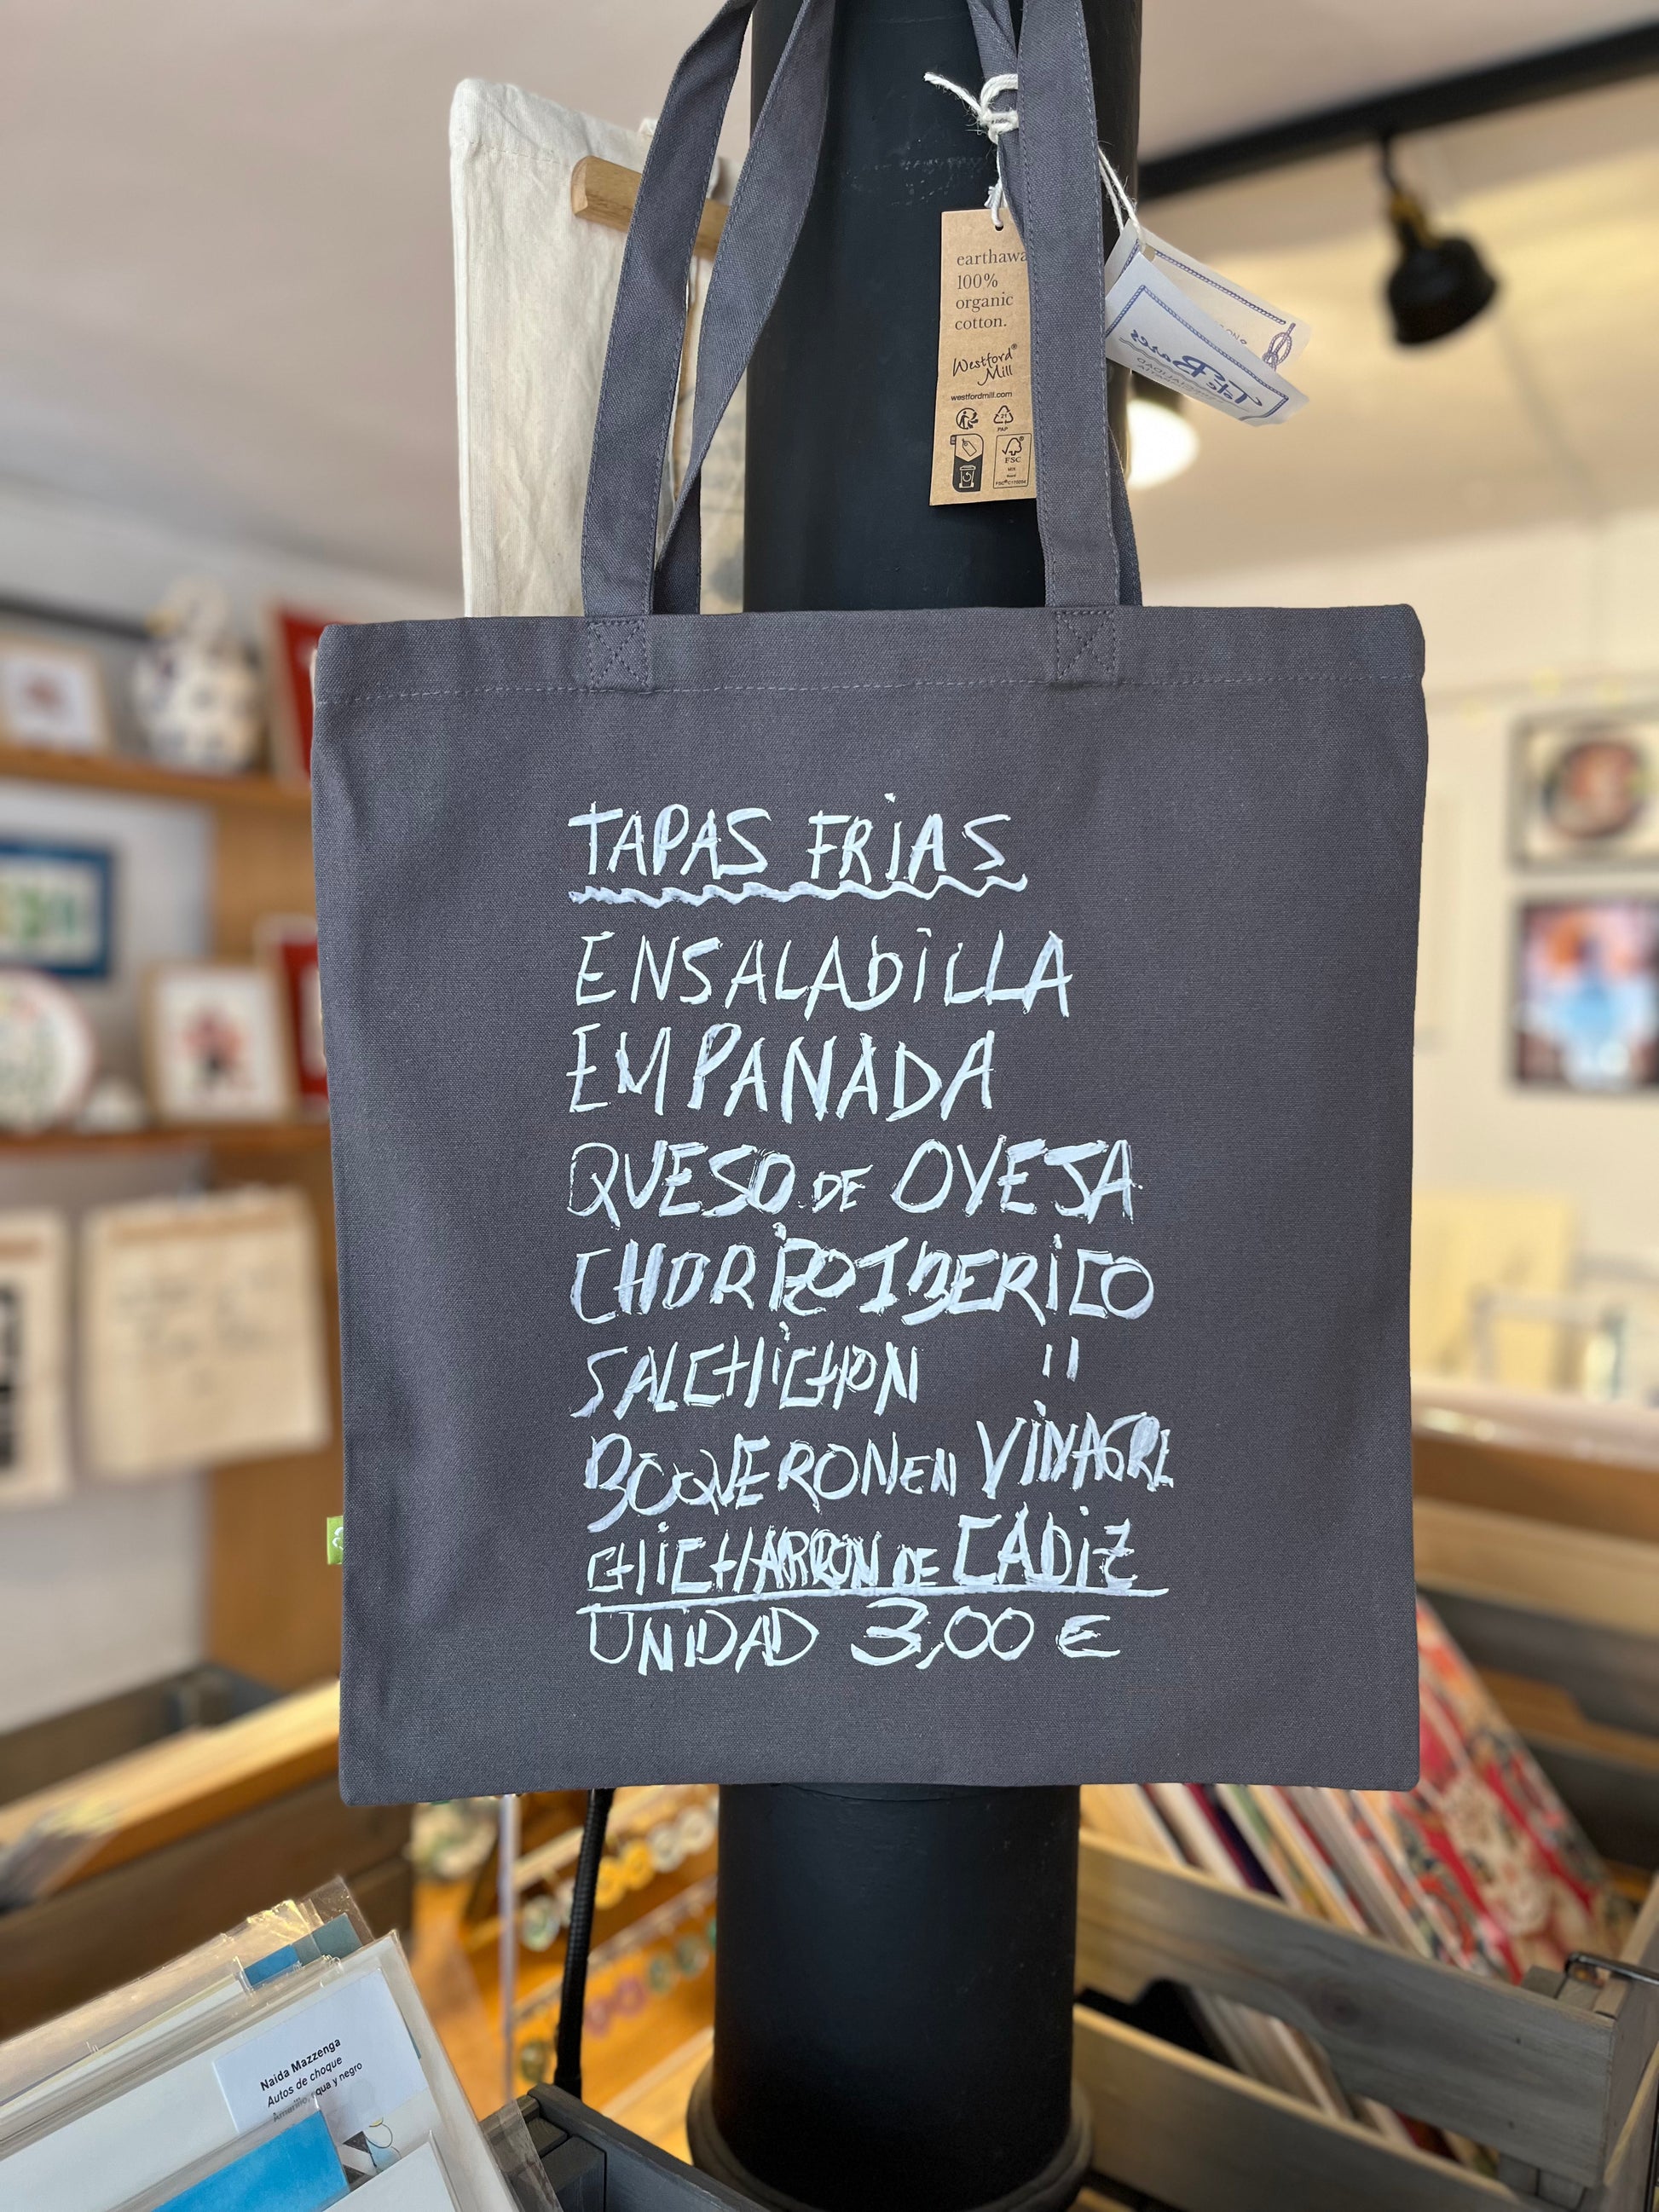 earthawa
100%
organic
cotton.
Westford®
Mill
westfordmill.com
21
PAP
FSC
TAPAS FRiAS
ENSALADiLLA
EMPANADA
QUESO DE OVEJA
CHORiZO IBERiCO
SALCHiCHON "
BOQUERON EN ViNAGRE
CHiCHARRON DE CÁDiZ
UNIDAD 3,00 €
Naida Mazzenga
Autos de choque
Amarillo, aqua y negro